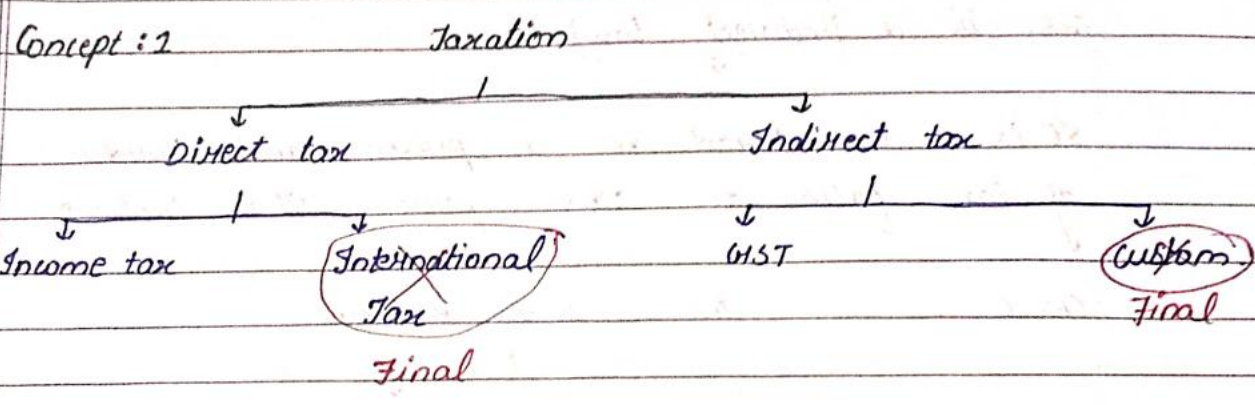 Concept : 1 Taxation
Direct tax Indirect tax
Income tax International GST Custom
Tax Final
Final